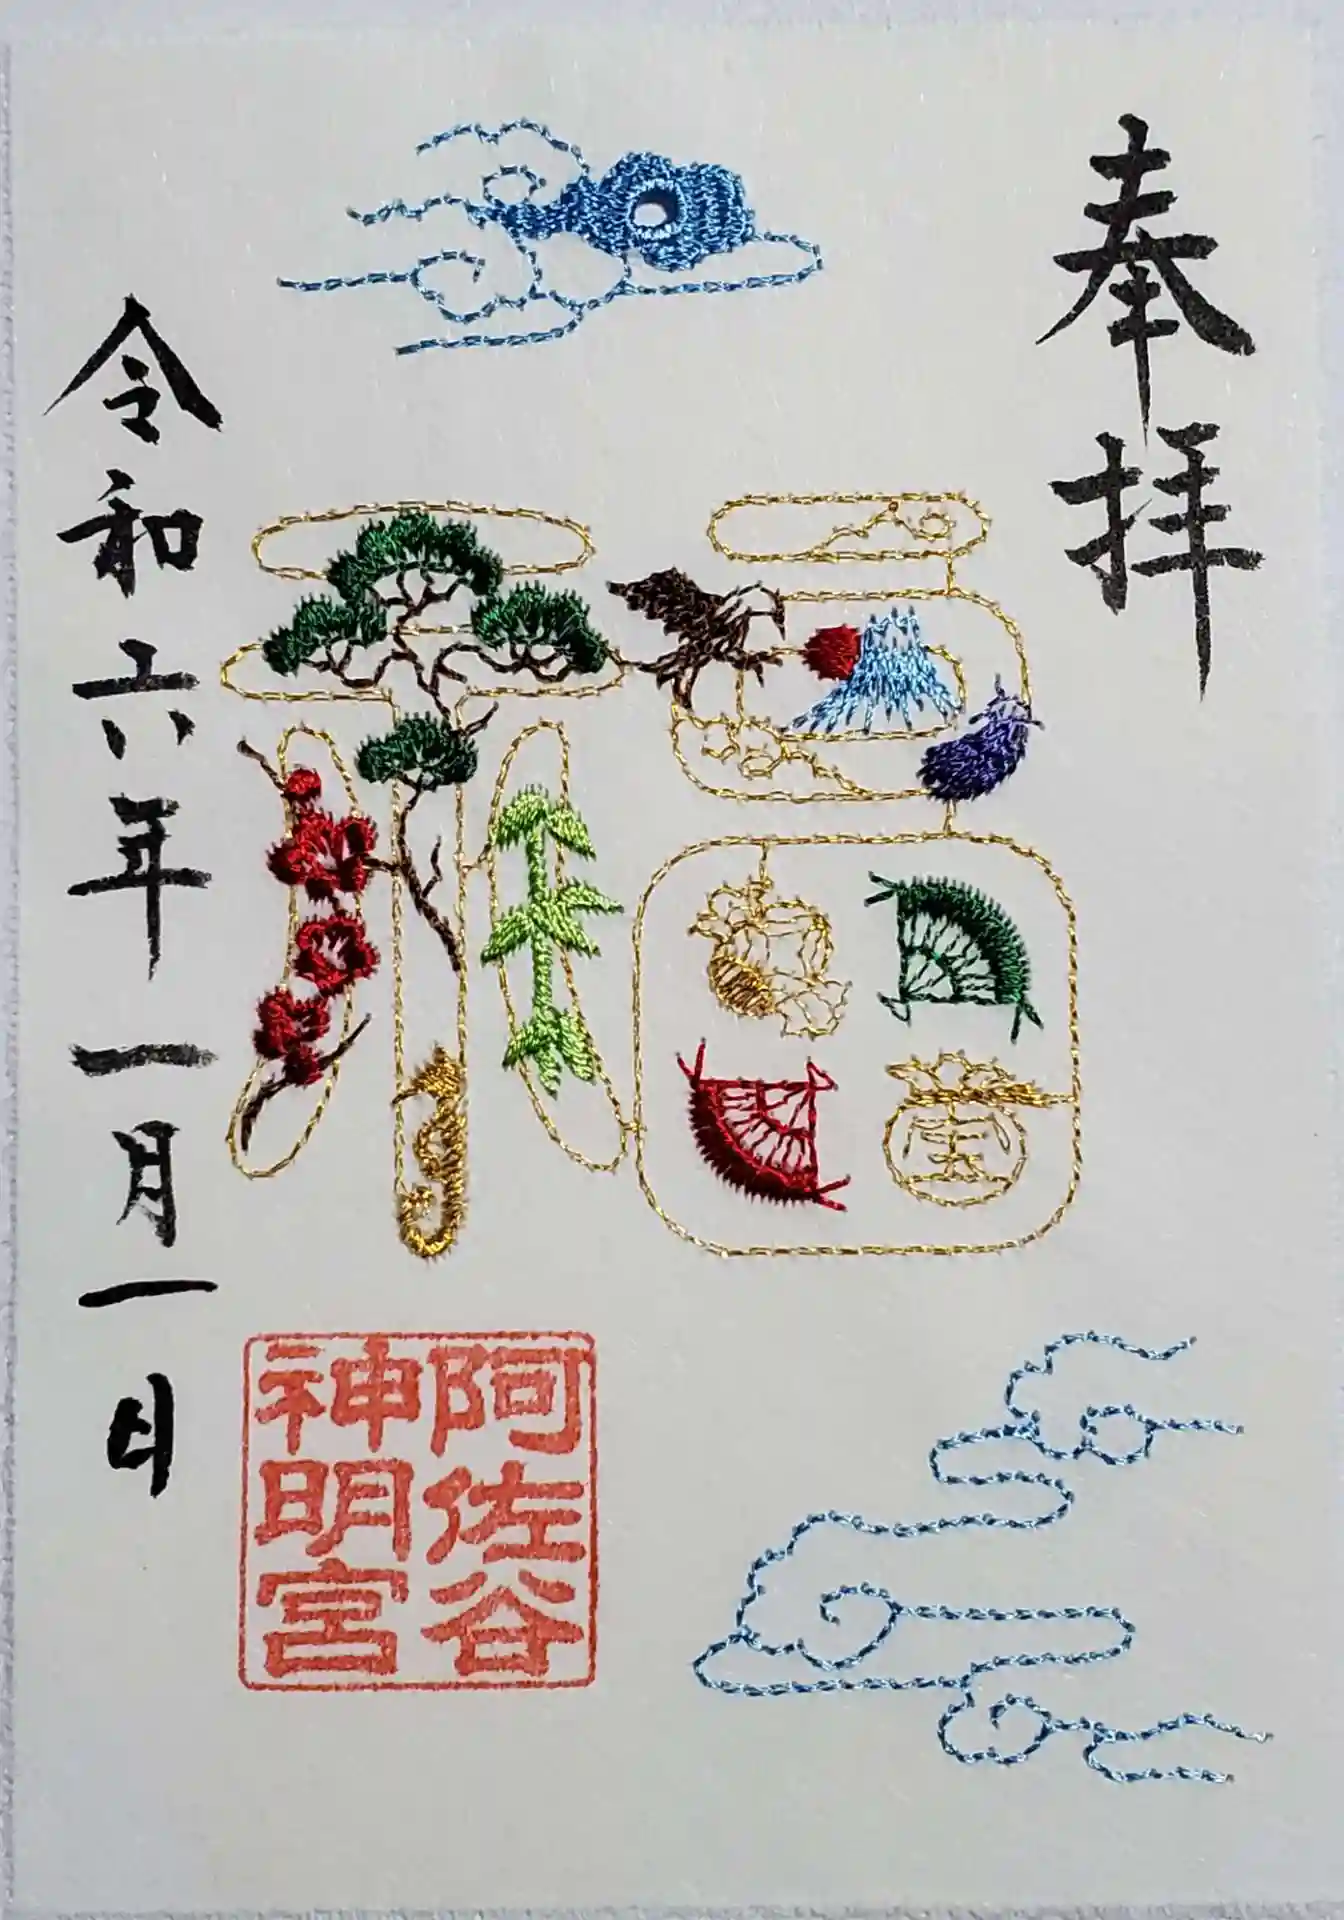 奉拝
福
寶
令和六年一月一日
阿佐谷
神明宮